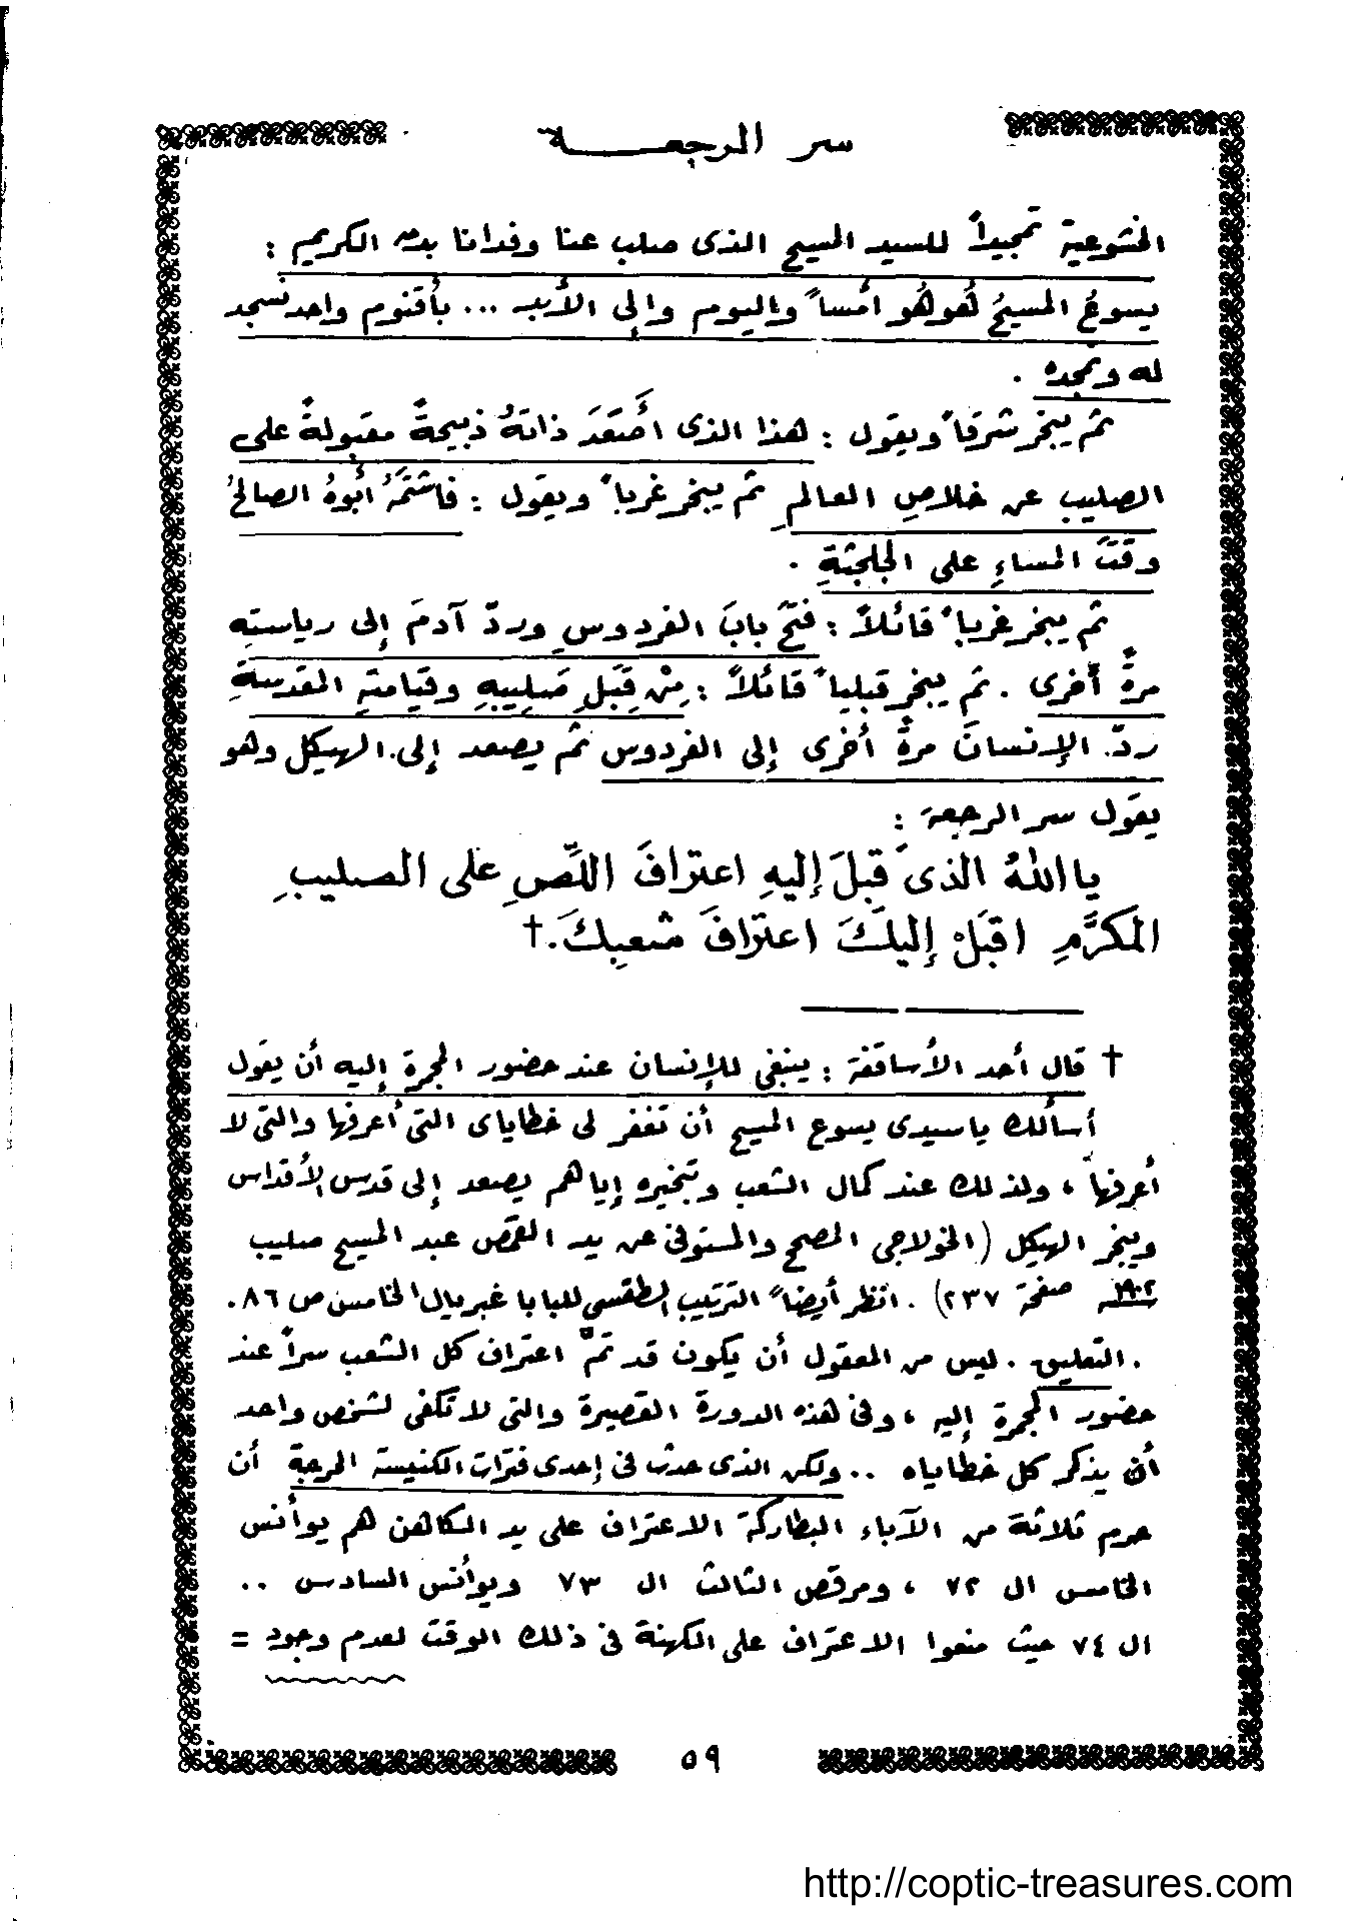 سر الرجعـــــة
الخشوعية تمجيداً للسيد المسيح الذى صلب عنا وفدانا بدمه الكريم :
يسوعُ المسيحُ هُو هُو أمساً واليوم وإلى الأبد ... بأقنوم واحد نسجد
له ونمجده .
ثم يبخر شرقاً ويقول : هذا الذى أَصعَدَ ذاتَهُ ذبيحةً مقبولةً على
الصليب عن خلاصِ العالمِ ثم يبخر غرباً ويقول : فاشتمَّهُ أبوهُ الصالحُ
وقتَ المساءِ على الجلجثةِ .
ثم يبخر غرباً قائلاً : فتحَ بابَ الفردوسِ وردّ آدمَ إلى رياستهِ
مرةً أخرى . ثم يبخر قبلياً قائلاً : مِنْ قِبَلِ صَلِيبِهِ وقيامتهِ المقدسةِ
ردّ الإنسانَ مرةً أخرى إلى الفردوس ثم يصعد إلى الهيكل وهو
يقول سر الرجعة :
يا اللهُ الذى قَبِلَ إليهِ اعترافَ اللّصِ على الصليبِ
المكرَّمِ اقبَلْ إليكَ اعترافَ شعبِكَ.†
† قال أحد الأساقفة : ينبغى للإنسان عند حضور المجمرة إليه أن يقول
أسألك ياسيدى يسوع المسيح أن تغفر لى خطاياى التى أعرفها والتى لا
أعرفها ، ولذلك عند كمال الشعب وتبخيره إياهم يصعد إلى قدس الأقداس
ويبخر الهيكل (الخولاجى المصحح والمستوفى عن يد القمص عبد المسيح صليب
١٩٠٢ صفحة ٢٣٧) . انظر أيضاً الترتيب الطقسى للبابا غبريال الخامس ص ٨٦ .
. التعليق . ليس من المعقول أن يكون قد تمّ اعتراف كل الشعب سراً عند
حضور المجمرة إليه ، وفى هذه الدورة القصيرة والتى لا تكفى لشخص واحد
أن يذكر كل خطاياه .. ولكن الذى حدث فى إحدى فترات الكنيسة الحرجة أن
حرم ثلاثة من الآباء البطاركة الاعتراف على يد الكاهن هم يوأنس
الخامس ال ٧٢ ، ومرقص الثالث ال ٧٣ ويوأنس السادس ..
ال ٧٤ حيث منعوا الاعتراف على الكهنة فى ذلك الوقت لعدم وجود =
٥٩
http://coptic-treasures.com